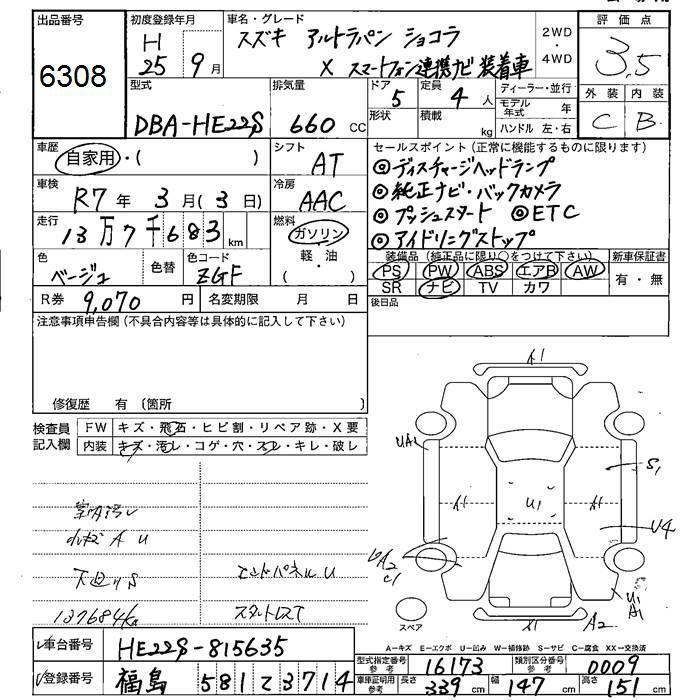 出品番号
6308
初度登録年月
H
25 9月
車名・グレード
スズキ アルトラパン ショコラ
X スマートフォン連携ナビ装着車
2WD
・
4WD
評価点
3.5
外装 内装
C B
型式
DBA-HE22S
排気量
660 cc
ドア
5
定員
4 人
形状
積載
kg
ディーラー・並行
モデル年式 年
ハンドル 左・右
車歴
自家用・( )
シフト
AT
セールスポイント(正常に機能するものに限ります)
◎ディスチャージヘッドランプ
◎純正ナビ・バックカメラ
◎プッシュスタート ◎ETC
◎アイドリングストップ
車検
R7年 3月(3日)
冷房
AAC
走行
13万7千683km
燃料
ガソリン
軽・油
( )
色
ベージュ
色替
色コード
ZGF
装備品(純正品に限り○をつけて下さい)
PS PW ABS エアB AW
SR ナビ TV カワ
新車保証書
有・無
R券 9,070円
名変期限 月 日
後日品
注意事項申告欄(不具合内容等は具体的に記入して下さい)
修復歴 有 〔箇所 〕
検査員
記入欄
FW キズ・飛石・ヒビ割・リペア跡・X要
内装 キズ・汚レ・コゲ・穴・スレ・キレ・破レ
室内汚レ
A U
下廻りS
エンドパネルU
137684km
A1
UA1
S1
A1
U1
A1
U4
A2
C1
U1
A1
X1
A2
スペア
A—キズ E—エクボ U—凹み W—補修跡 S—サビ C—腐食 XX—交換済
車台番号
HE22S-815635
登録番号
福島 581 て3714
型式指定番号
参考
16173
類別区分番号
参考
0009
車庫証明用
参考
長さ 339 cm
幅 147 cm
高さ 151 cm